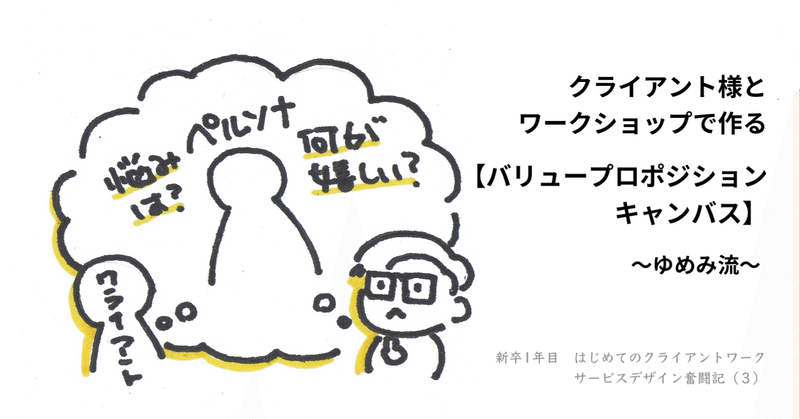 ペルソナ
悩み
は?
何が
嬉しい?
クライアント
クライアント様と
ワークショップで作る
【バリュープロポジション
キャンバス】
〜ゆめみ流〜
新卒1年目 はじめてのクライアントワーク
サービスデザイン奮闘記(3)